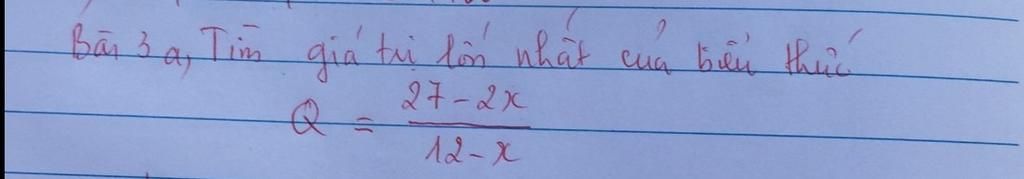 Bài 3 a, Tìm giá trị lớn nhất của biểu thức
Q = \frac{27-2x}{12-x}